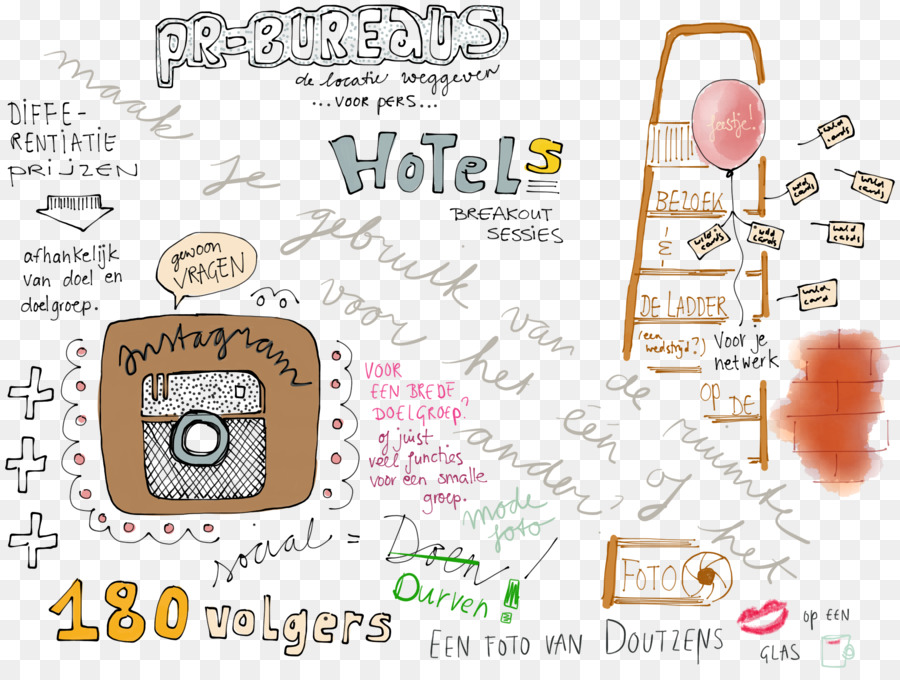 PR-BUREAUS
de locatie weggeven
...voor pers...
DIFFE-
RENTIATIE
PRIJZEN
afhankelijk
van doel en
doelgroep.
HOTELS
BREAKOUT
SESSIES
maak
je
gebruik van de ruimte
voor het één of het
ander?
gewoon
VRAGEN
Instagram
VOOR
EEN BREDE
DOELGROEP?
of juist
veel functies
voor een smalle
groep.
mode
foto
social = Doen!
Durven!
180 volgers
feestje!
BEZOEK
&
DE LADDER
(een
wedstrijd?)
Voor je
netwerk
OP DE
wild
cards
wild
cards
wild
cards
wild
cards
wild
cards
wild
cards
wild
card
FOTO
EEN FOTO VAN DOUTZENS
OP EEN
GLAS